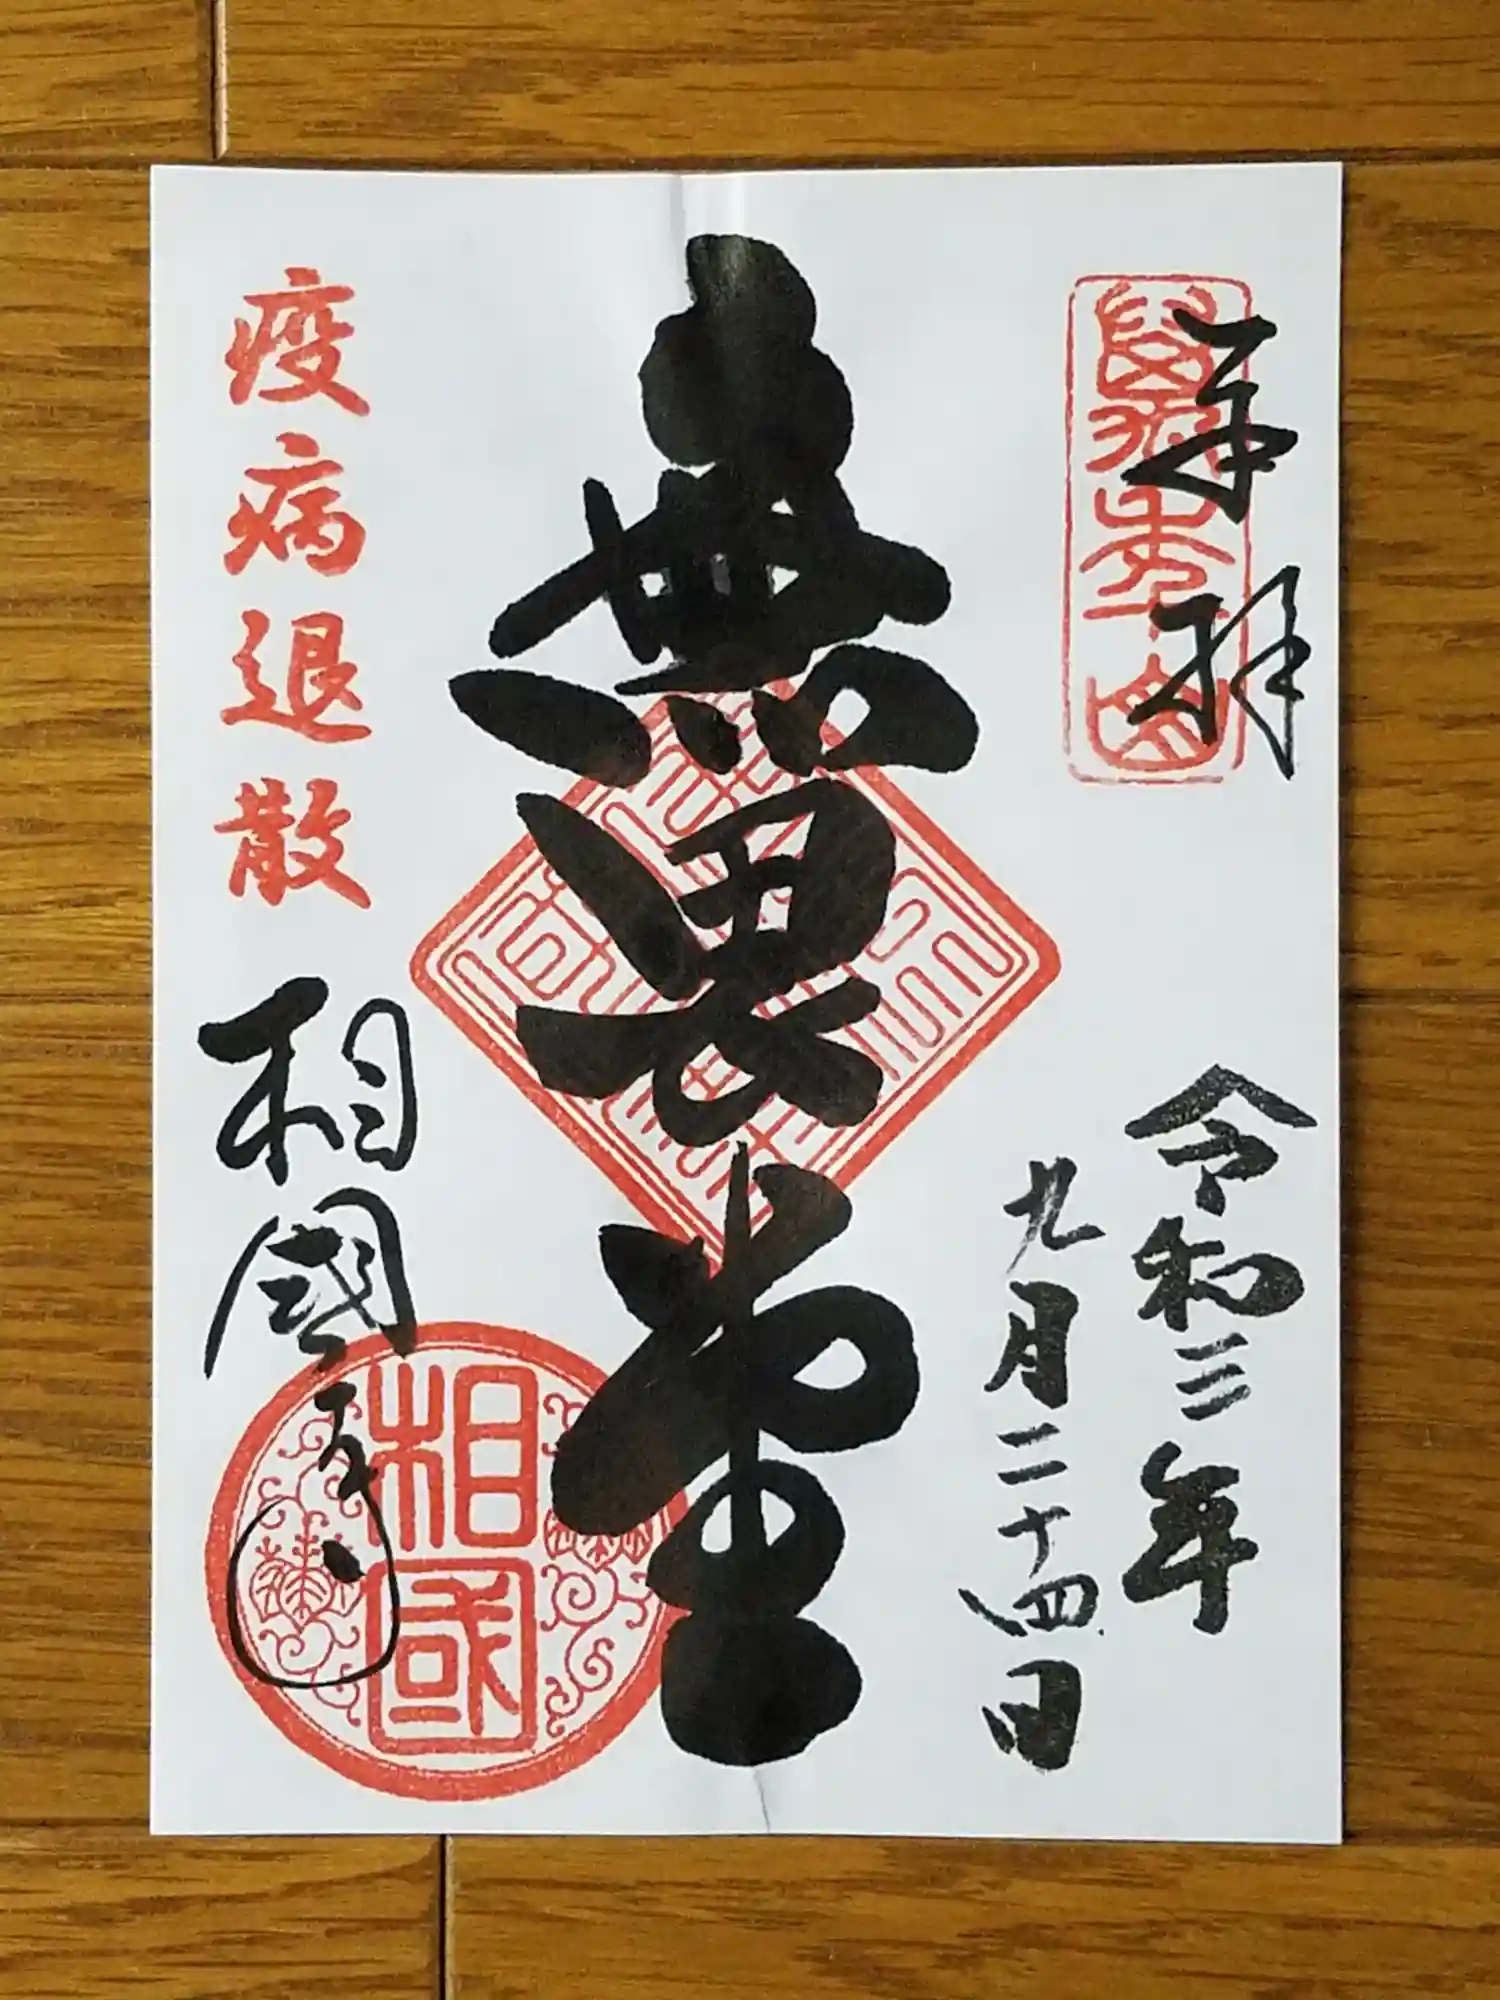 奉拝
萬年山
令和三年
九月二十四日
無畏堂
疫病退散
相國寺
相國